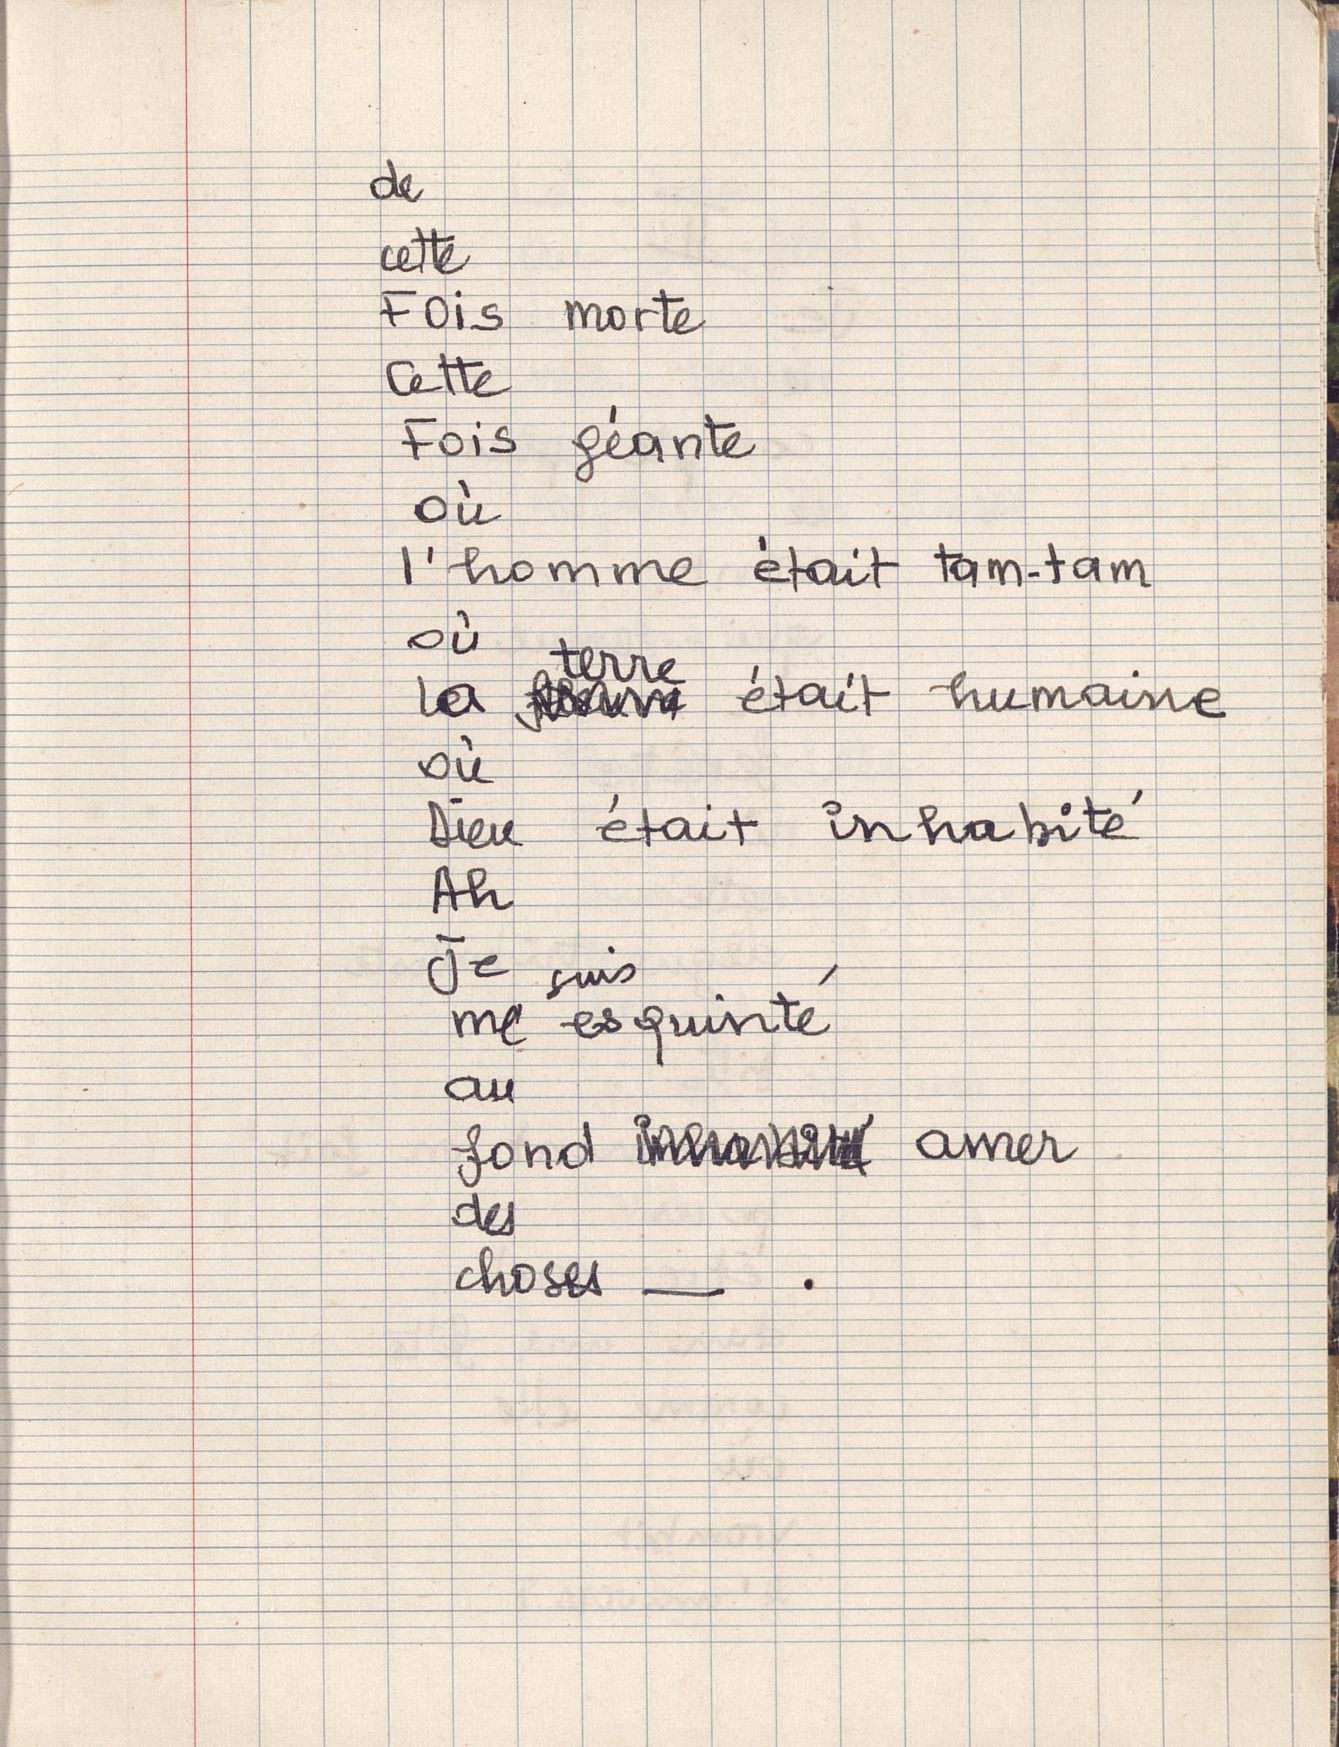 de
cette
Fois morte
Cette
Fois géante
où
l'homme était tam-tam
où
la terre était humaine
où
Dieu était inhabité
Ah
Je suis
me esquinté
au
fond amer
des
choses — .